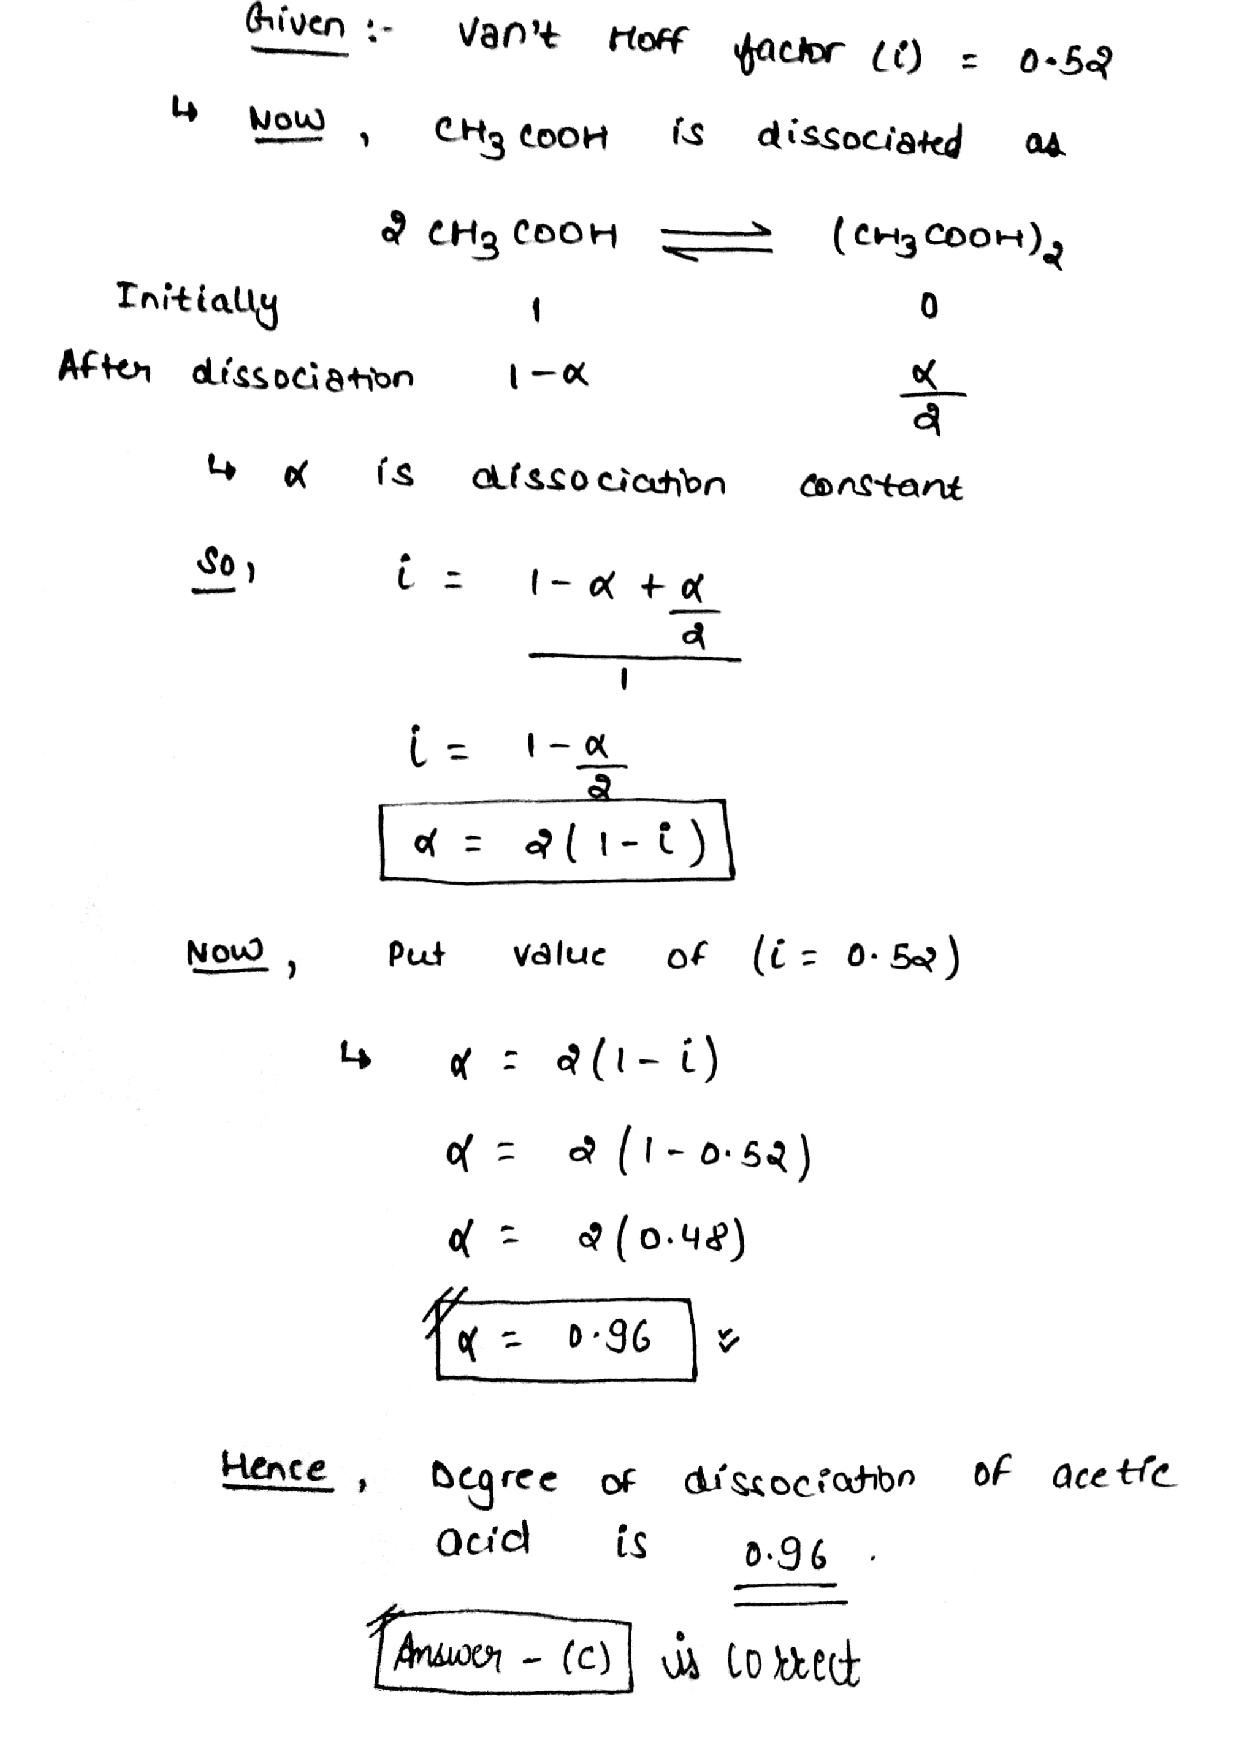 Given :- Van't Hoff factor (i) = 0.52
↳ Now, CH3COOH is dissociated as
2 CH3COOH ⇌ (CH3COOH)2
Initially 1 0
After dissociation 1-α α/2
↳ α is dissociation constant
So, i = (1-α+α/2)/1
i = 1-α/2
α = 2(1-i)
Now, Put value of (i = 0.52)
↳ α = 2(1-i)
α = 2(1-0.52)
α = 2(0.48)
α = 0.96
Hence, Degree of dissociation of acetic
acid is 0.96.
Answer - (C) is correct